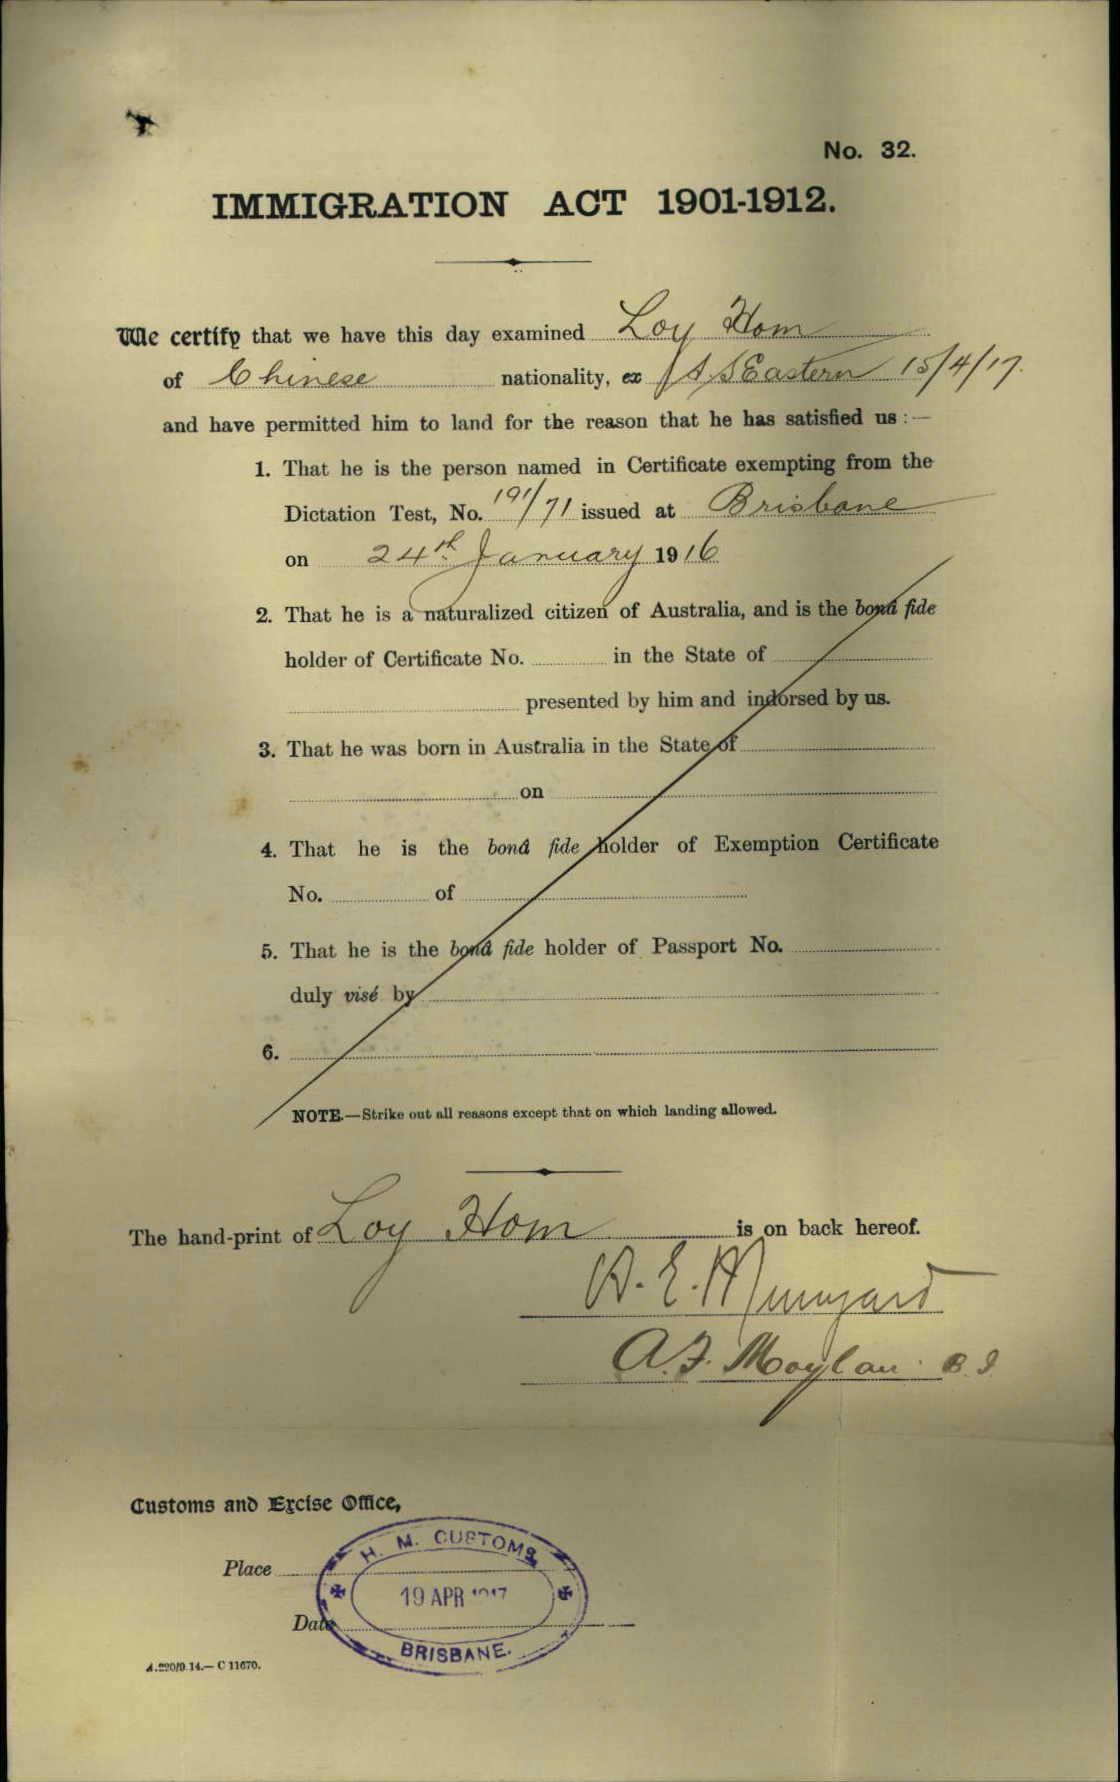 No. 32.
IMMIGRATION ACT 1901-1912.
We certify that we have this day examined Loy Hom
of Chinese nationality, ex SS Eastern 15/4/17.
and have permitted him to land for the reason that he has satisfied us :—
1. That he is the person named in Certificate exempting from the
Dictation Test, No. 191/71 issued at Brisbane
on 24th January 1916
2. That he is a naturalized citizen of Australia, and is the bonâ fide
holder of Certificate No. in the State of
presented by him and indorsed by us.
3. That he was born in Australia in the State of
on
4. That he is the bonâ fide holder of Exemption Certificate
No. of
5. That he is the bonâ fide holder of Passport No.
duly visé by
6.
NOTE.—Strike out all reasons except that on which landing allowed.
The hand-print of Loy Hom is on back hereof.
E. Mungard
A.F. Moylan B.I.
Customs and Excise Office,
H. M. CUSTOMS
Place
19 APR 1917
Date
BRISBANE.
A.220/9.14.— C 11670.